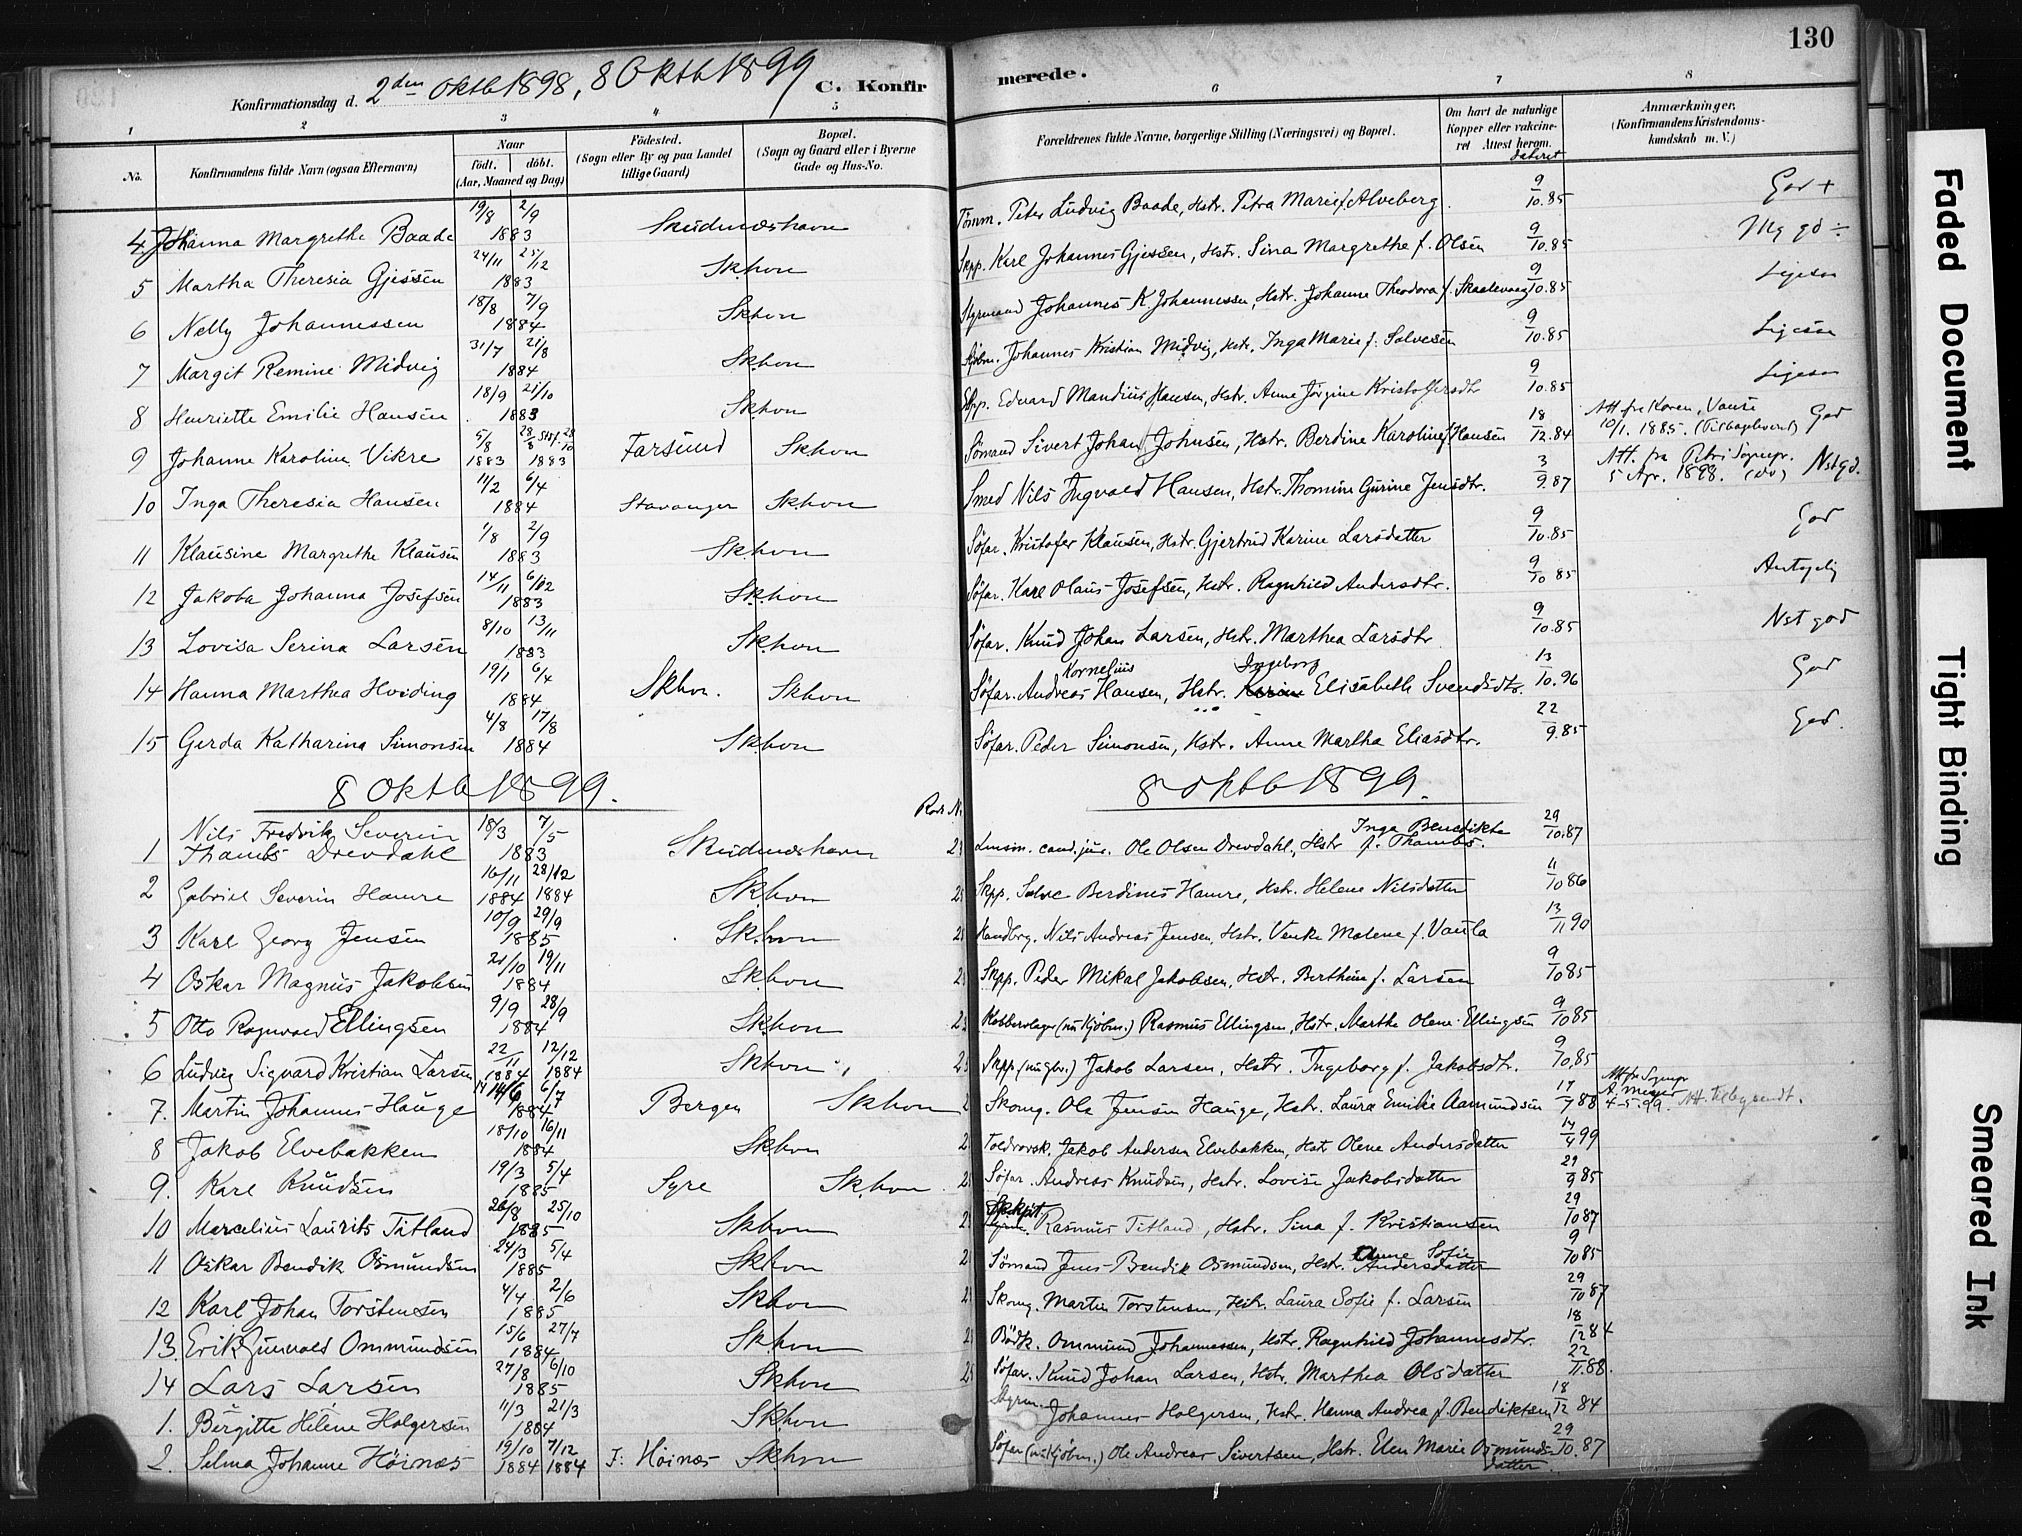 130
Konfirmationsdag d. 2den Oktb 1898, 8 Oktb 1899
C. Konfirmerede.
1 2 3 4 5 6 7 8
No. Konfirmandens fulde Navn (ogsaa Efternavn) Naar født. døbt. (Aar, Maaned og Dag) Födested. (Sogn eller By og paa Landet tillige Gaard) Bopæl. (Sogn og Gaard eller i Byerne Gade og Hus-No. Forældrenes fulde Navne, borgerlige Stilling (Næringsvei) og Bopæl. Om havt de naturlige Kopper eller vakcineret Attest herom. dateret Anmærkninger. (Konfirmandens Kristendomskundskab m. V.)
4 Johanna Margrethe Baade 19/8 2/9 1883 Skudneshavn Tömm. Peter Ludvig Baade, Hstr. Petra Marie f. Alveberg 9/10.85 God +
5 Martha Theresia Gjessen 24/11 25/12 1883 Skhvn Skpp. Karl Johannes Gjessen, Hstr. Sina Margrethe f. Olsen 9/10.85 Mg gd ÷
6 Nelly Johannessen 18/8 7/9 1884 Skhvn Styrmand Johannes K Johannessen, Hstr. Johanne Theodora f. Skaalevaag 9/10.85 Ligesaa
7 Margit Remine Midvig 31/7 21/8 1884 Skhvn Johannes Kristian Midvig, Hstr. Inga Marie f. Salvesen 9/10.85 Ligesaa
8 Henriette Emilie Hansen 18/9 21/10 1883 Skhvn Skpp. Edvard Mandius Hansen, Hstr. Anne Jörgine Kristoffersdtr 9/10.85 Ligesaa
9 Johanne Karoline Vikre 5/8 1883 28/8 1883 Farsund Skhvn Sömand Sivert Johan Johnsen, Hstr. Berdine Karoline f. Hansen 18/12.84 Att fra Koren, Vanse 10/1. 1885. (Tilbageleveret) God
10 Inga Theresia Hansen 11/2 6/4 1884 Stavanger Skhvn Smed Nils Ingvald Hansen, Hstr. Thomine Gurine Jensdtr. 3/9.87 Att. fra Petri Sognepr. 5 Apr. 1898. Nst gd.
11 Klausine Margrethe Klausen 1/8 2/9 1883 Skhvn Söfar. Kristofer Klausen, Hstr. Gjertrud Karine Larsdatter 9/10.85 God
12 Jakoba Johanna Josefsen 14/11 6/12 1883 Skhvn Söfar. Karl Olaus Josefsen, Hstr. Ragnhild Andersdtr. 9/10 85 Antagelig
13 Lovisa Serina Larsen 8/10 13/11 1883 Skhvn Söfar. Knud Johan Larsen, Hstr. Marthea Larsdtr 9/10.85 Nst god
14 Hanna Marthea Hviding 19/1 6/4 1884 Skhvn. Skhvn Söfar. Andreas Kornelius Hansen, Hstr. Karine Ingeborg Elisabeth Svendsdtr. 13/10.96 God
15 Gerda Katharina Simonsen 4/8 17/8 1884 Skhvn Söfar. Peder Simonsen, Hstr. Anne Martha Eliasdtr. 22/9.85 God.
8 Oktb 1899. 8 Oktb 1899.
1 Nils Fredrik Severin Thambs Drevdahl 18/3 7/5 1883 Skudneshavn Lensm. cand. jur. Ole Olsen Drevdahl, Hstr Inga Benedikte f. Thambs. 29/10.87
2 Gabriel Severin Hamre 16/11 1884 28/12 1884 Skhvn Skpp. Salve Berdines Hamre, Hstr. Helene Nilsdatter 11/10 86
3 Karl Georg Jensen 10/9 29/9 1885 Skhvn Handbrg. Nils Andreas Jensen, Hstr. Venke Malene f. Vaula 13/11 90
4 Oskar Magnus Jakobsen 21/10 19/11 1884 Skhvn Skpp. Peder Mikal Jakobsen, Hstr. Berthine f. Larsen 9/10 85
5 Otto Ragnvald Ellingsen 9/9 28/9 1884 Skhvn Kobberslager (nu Kjöbm.) Rasmus Ellingsen, Hstr. Marthe Olene Ellingsen 9/10 85
6 Ludvig Sigvard Kristian Larsen 22/11 1884 12/12 1884 Skhvn Skpp. Jakob Larsen, Hstr. Ingeborg f. Jakobsdtr. 9/10.85
7. Martin Johannes Hauge 14/6 6/7 1884 Bergen Skhvn Skomg. Ole Jensen Hauge, Hstr. Laura Emilie Aamundsen 17/7 88 4-5-99. Att. tilbagsendt.
8 Jakob Elvebakken 18/10 16/11 1884 Skhvn Toldrorsk. Jakob Andersen Elvebakken, Hstr Olene Andersdatter 14/4 99
9. Karl Knudsen 19/3 5/4 1885 Syre Skhvn Söfar. Andreas Knudsen, Hstr. Lovise Jakobsdatter 29/9 85
10 Marcelius Laurits Titland 26/8 25/10 1885 Skhvn Rasmus Titland, Hstr. Sina f. Kristiansen 29/10 87
11 Oskar Bendik Osmundsen 24/3 5/4 1885 Skhvn Sömand Jens Bendik Osmundsen, Hstr. Anne Sofie Andersdatter 9/10 85
12 Karl Johan Torstensen 4/4 2/6 1885 Skhvn Skomg. Martin Torstensen, Hstr. Laura Sofie f. Larsen 29/10 87
13. Erik Gunvald Ommundsen 15/6 27/7 1884 Skhvn Bödk. Ommund Johannessen, Hstr. Ragnhild Johannesdtr. 18/12 84
14 Lars Larsen 27/8 6/10 1885 Skhvn Söfar. Knud Johan Larsen, Hstr. Marthea Olsdatter 22/11.88.
1. Bergitte Helene Holgersen 11/3 21/3 1884 Skhvn Styrm. Johannes Holgersen, Hstr. Hanna Andrea f. Bendiktsen 18/12 84
2. Selma Johanne Höines 19/10 1884 7/12 1884 F: Höines Skhvn Söfar (nu Kjöbm.) Ole Andreas Sivertsen, Hstr. Elen Marie Osmundsdatter. 29/10.87
Faded Document
Tight Binding
Smeared Ink